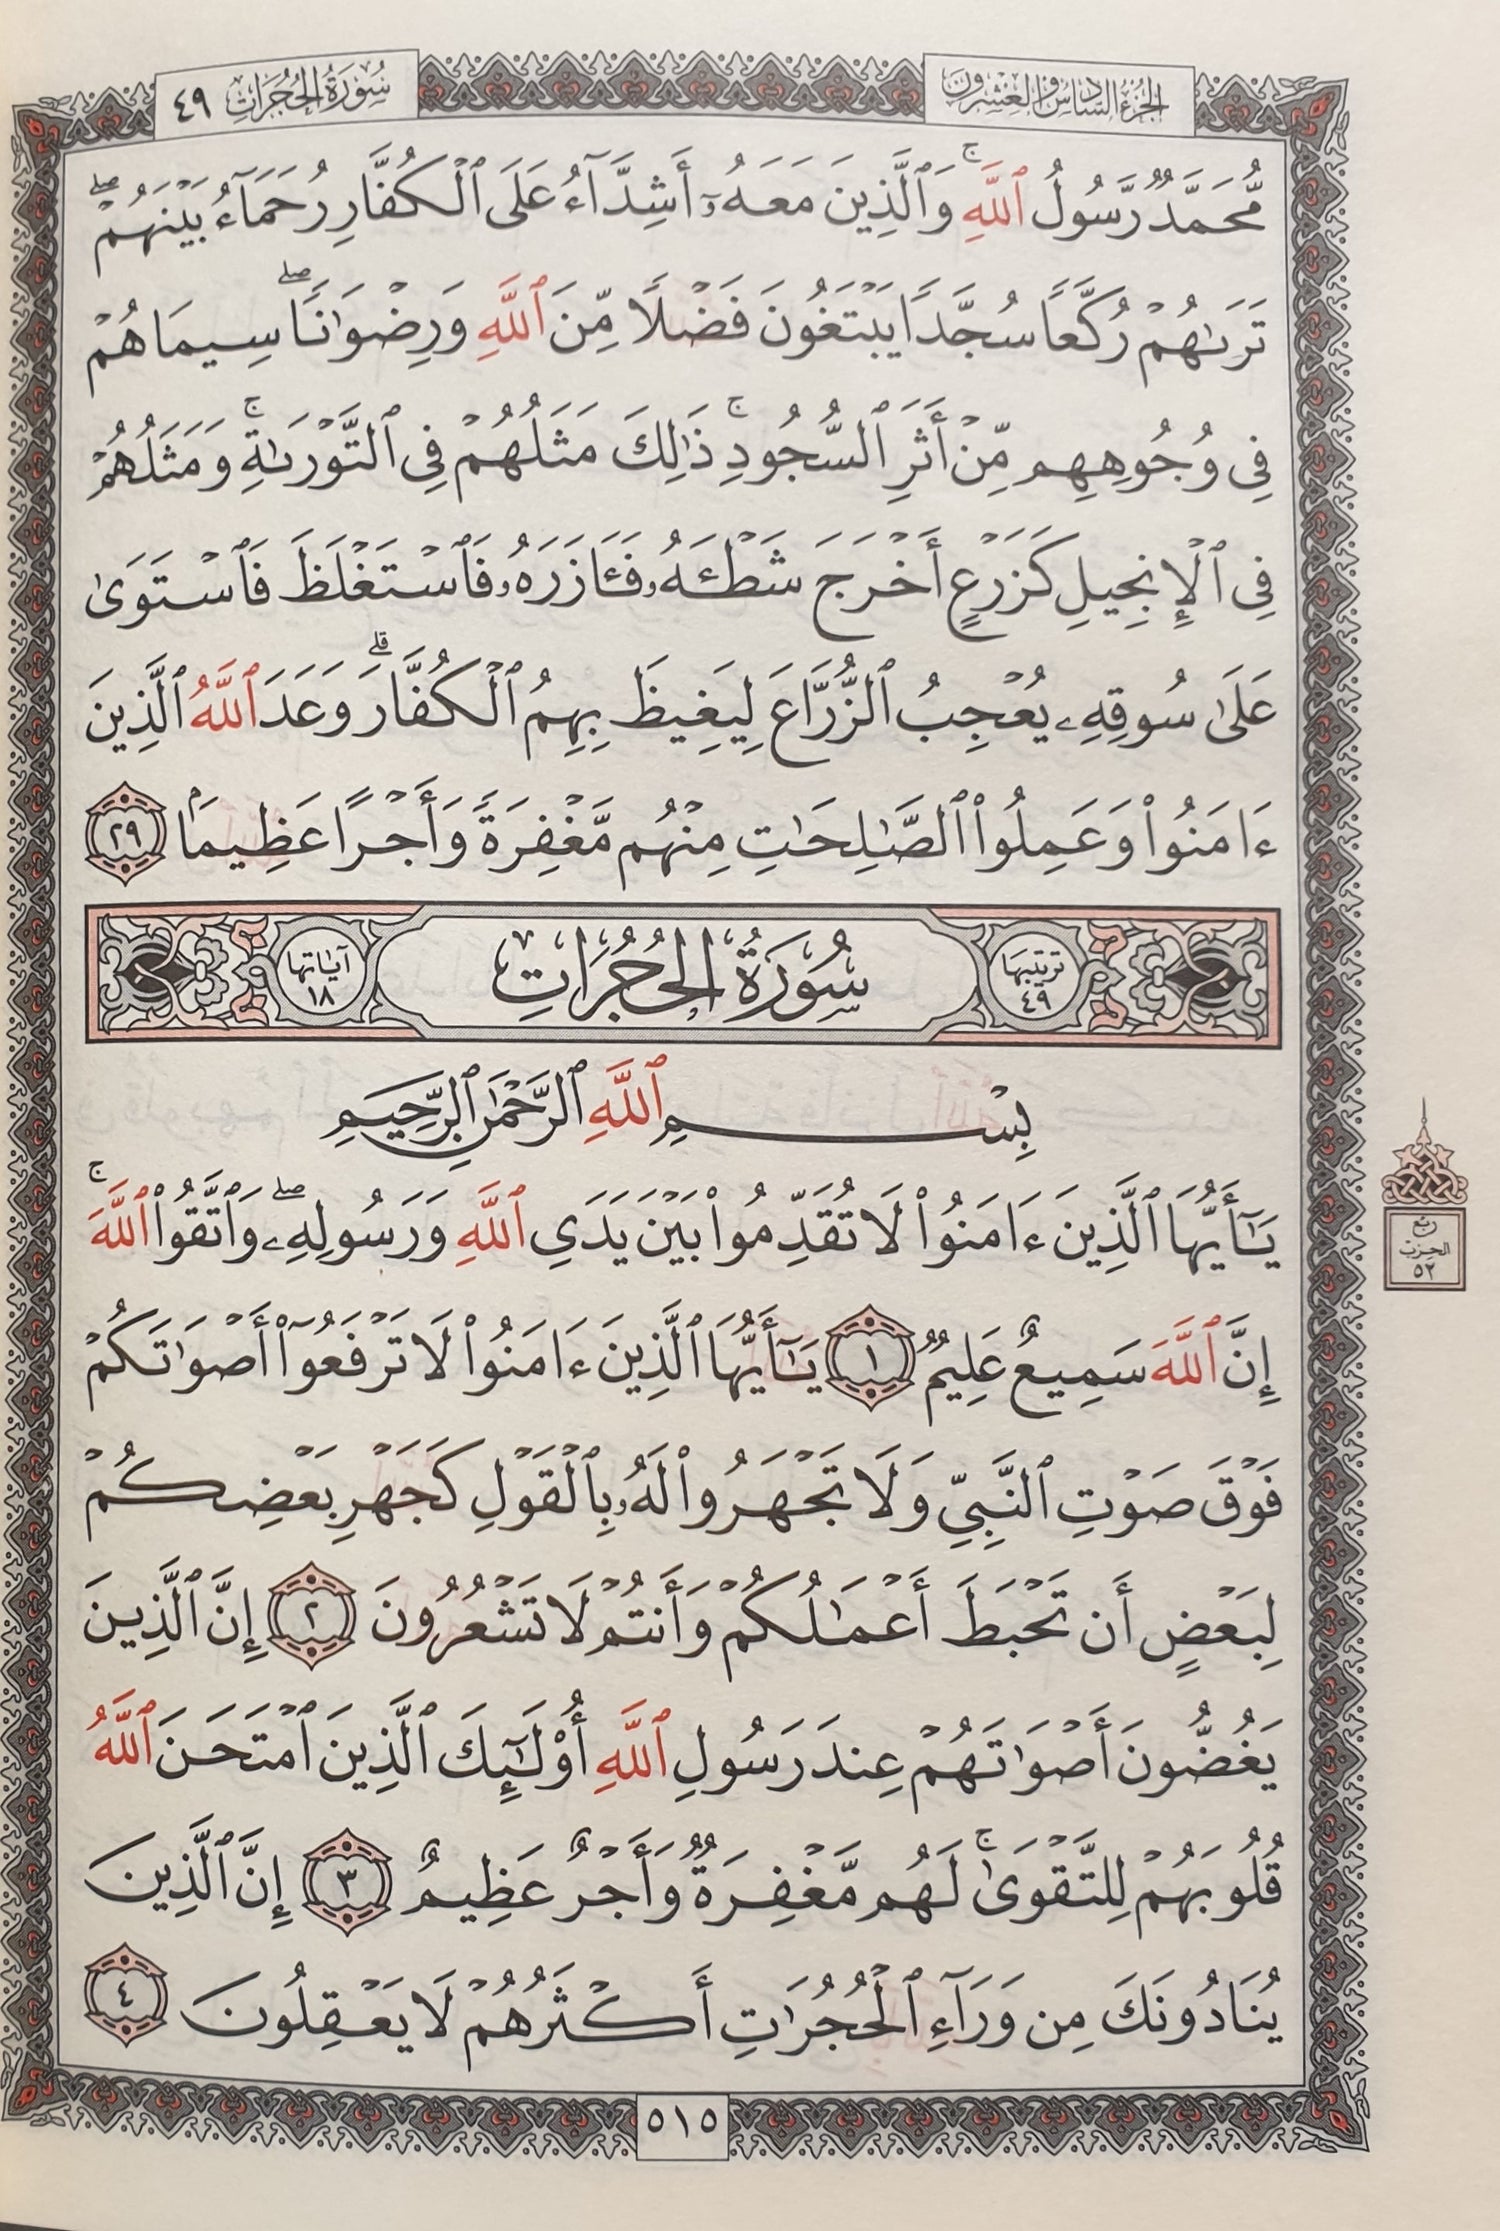 الجزء السادس والعشرون
سورة الحجرات ٤٩
مُّحَمَّدٌ رَّسُولُ ٱللَّهِۚ وَٱلَّذِينَ مَعَهُۥٓ أَشِدَّآءُ عَلَى ٱلْكُفَّارِ رُحَمَآءُ بَيْنَهُمْۖ
تَرَىٰهُمْ رُكَّعًا سُجَّدًا يَبْتَغُونَ فَضْلًا مِّنَ ٱللَّهِ وَرِضْوَٰنًاۖ سِيمَاهُمْ
فِى وُجُوهِهِم مِّنْ أَثَرِ ٱلسُّجُودِۚ ذَٰلِكَ مَثَلُهُمْ فِى ٱلتَّوْرَىٰةِۚ وَمَثَلُهُمْ
فِى ٱلْإِنجِيلِ كَزَرْعٍ أَخْرَجَ شَطْـَٔهُۥ فَـَٔازَرَهُۥ فَٱسْتَغْلَظَ فَٱسْتَوَىٰ
عَلَىٰ سُوقِهِۦ يُعْجِبُ ٱلزُّرَّاعَ لِيَغِيظَ بِهِمُ ٱلْكُفَّارَۗ وَعَدَ ٱللَّهُ ٱلَّذِينَ
ءَامَنُوا۟ وَعَمِلُوا۟ ٱلصَّٰلِحَٰتِ مِنْهُم مَّغْفِرَةً وَأَجْرًا عَظِيمَۢا ٢٩
ترتيبها ٤٩ سُورَةُ الحُجُرَاتِ آياتها ١٨
بِسْمِ ٱللَّهِ ٱلرَّحْمَٰنِ ٱلرَّحِيمِ
يَٰٓأَيُّهَا ٱلَّذِينَ ءَامَنُوا۟ لَا تُقَدِّمُوا۟ بَيْنَ يَدَىِ ٱللَّهِ وَرَسُولِهِۦۖ وَٱتَّقُوا۟ ٱللَّهَۚ
إِنَّ ٱللَّهَ سَمِيعٌ عَلِيمٌ ١ يَٰٓأَيُّهَا ٱلَّذِينَ ءَامَنُوا۟ لَا تَرْفَعُوٓا۟ أَصْوَٰتَكُمْ
فَوْقَ صَوْتِ ٱلنَّبِىِّ وَلَا تَجْهَرُوا۟ لَهُۥ بِٱلْقَوْلِ كَجَهْرِ بَعْضِكُمْ
لِبَعْضٍ أَن تَحْبَطَ أَعْمَٰلُكُمْ وَأَنتُمْ لَا تَشْعُرُونَ ٢ إِنَّ ٱلَّذِينَ
يَغُضُّونَ أَصْوَٰتَهُمْ عِندَ رَسُولِ ٱللَّهِ أُو۟لَٰٓئِكَ ٱلَّذِينَ ٱمْتَحَنَ ٱللَّهُ
قُلُوبَهُمْ لِلتَّقْوَىٰۚ لَهُم مَّغْفِرَةٌ وَأَجْرٌ عَظِيمٌ ٣ إِنَّ ٱلَّذِينَ
يُنَادُونَكَ مِن وَرَآءِ ٱلْحُجُرَٰتِ أَكْثَرُهُمْ لَا يَعْقِلُونَ ٤
ربع
الحزب
٥٢
٥١٥